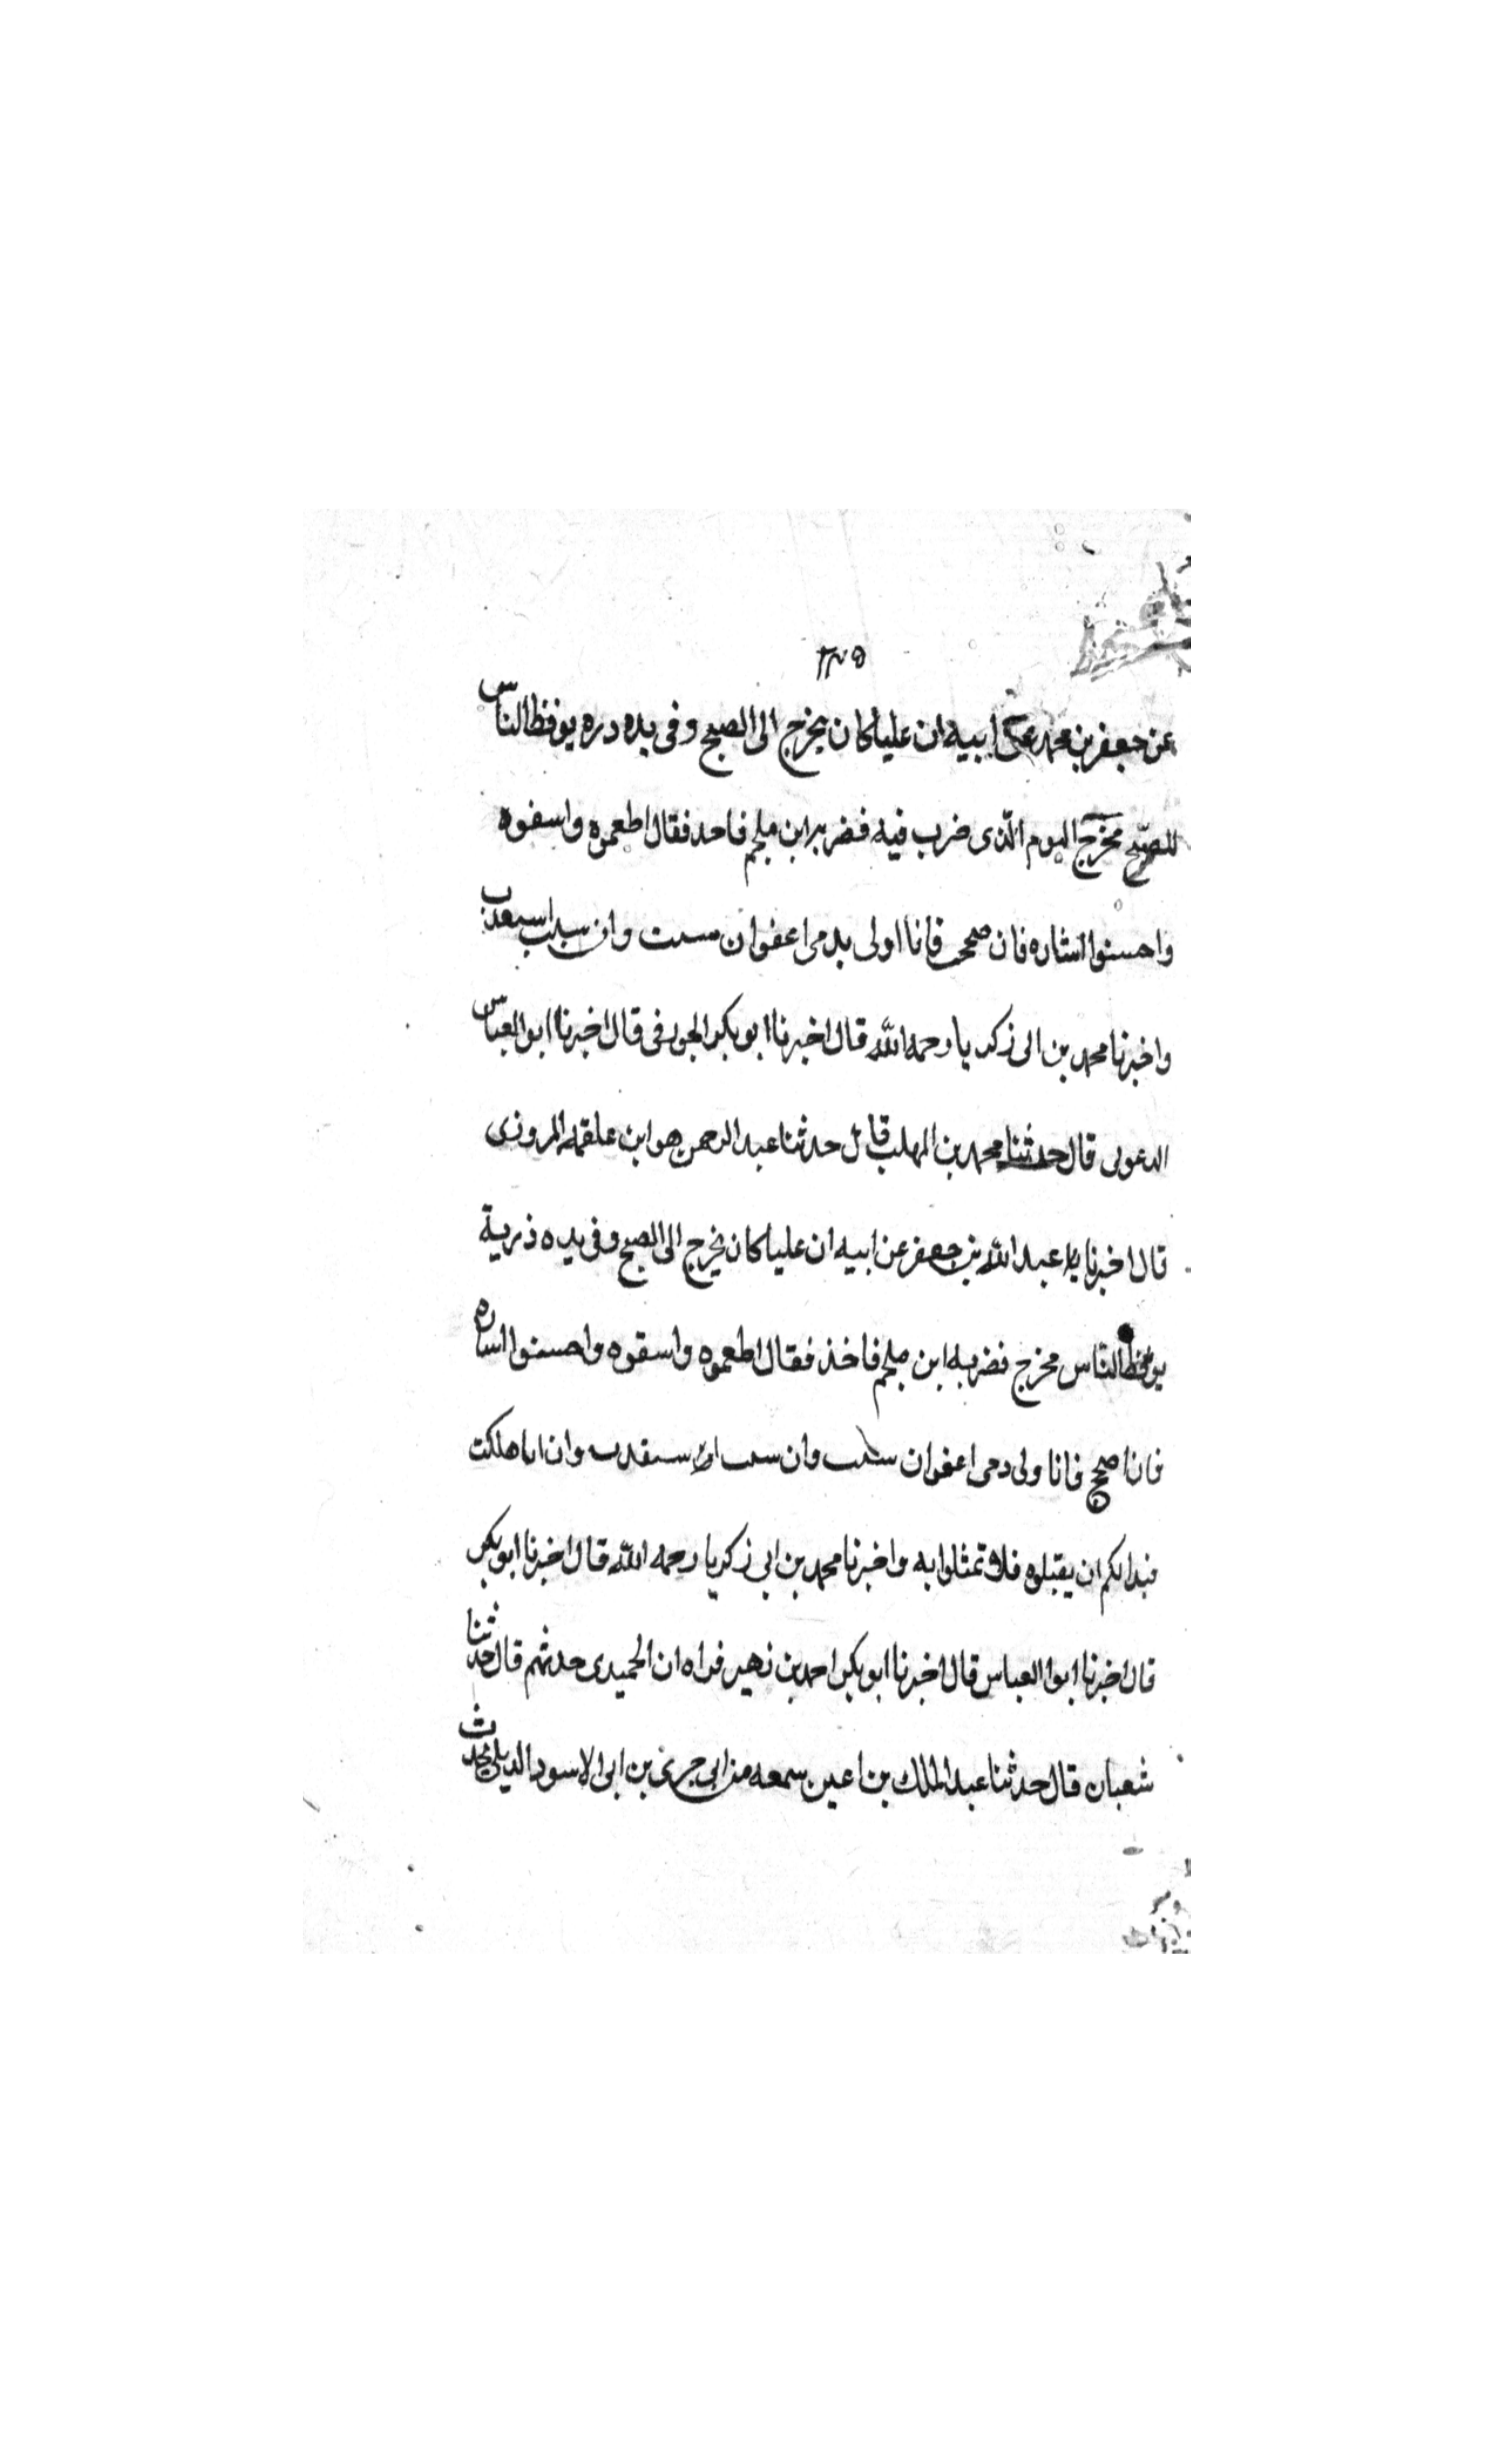 ٣٧٥
عن جعفر بن محمد عن ابيه ان عليا كان يخرج الى الصبح وفى يده دره يوقظ الناس
للصبح مخرج اليوم الذى ضرب فيه فضربه ابن ملجم فاحد فقال اطعموه واسقوه
واحسنوا اساره فان صححت فانا اولى بدمى اعفوان سىت وان
واخبرنا محمد بن ابى زكريا رحمه الله قال اخبرنا ابو بكر الجورقى قال اخبرنا ابو العباس
الدعولى قال حدثنا محمد بن المهلب قال حدثنا عبد الرحمن هو ابن علقمه المروزى
قال اخبرنا عبد الله بن جعفر عن ابيه ان عليا كان يخرج الى الصبح وفى يده ذرية
يوقظ الناس مخرج فضربه ابن ملجم فاخذ فقال اطعموه واسقوه واحسنوا اساره
فان اصح فانا ولى دمى اعفوان وان وان انا هلكت
فبدا لكم ان يقتلوه فلا تمثلوا به واخبرنا محمد بن ابى زكريا رحمه الله قال اخبرنا ابو بكر
قال اخبرنا ابو العباس قال اخبرنا ابو بكر احمد بن زهير قراه ان الحميدى حدثهم قال حدثنا
شعبان قال حدثنا عبد الملك بن اعين سمعه من ابى جرى بن ابى الاسود الديلى يحدث